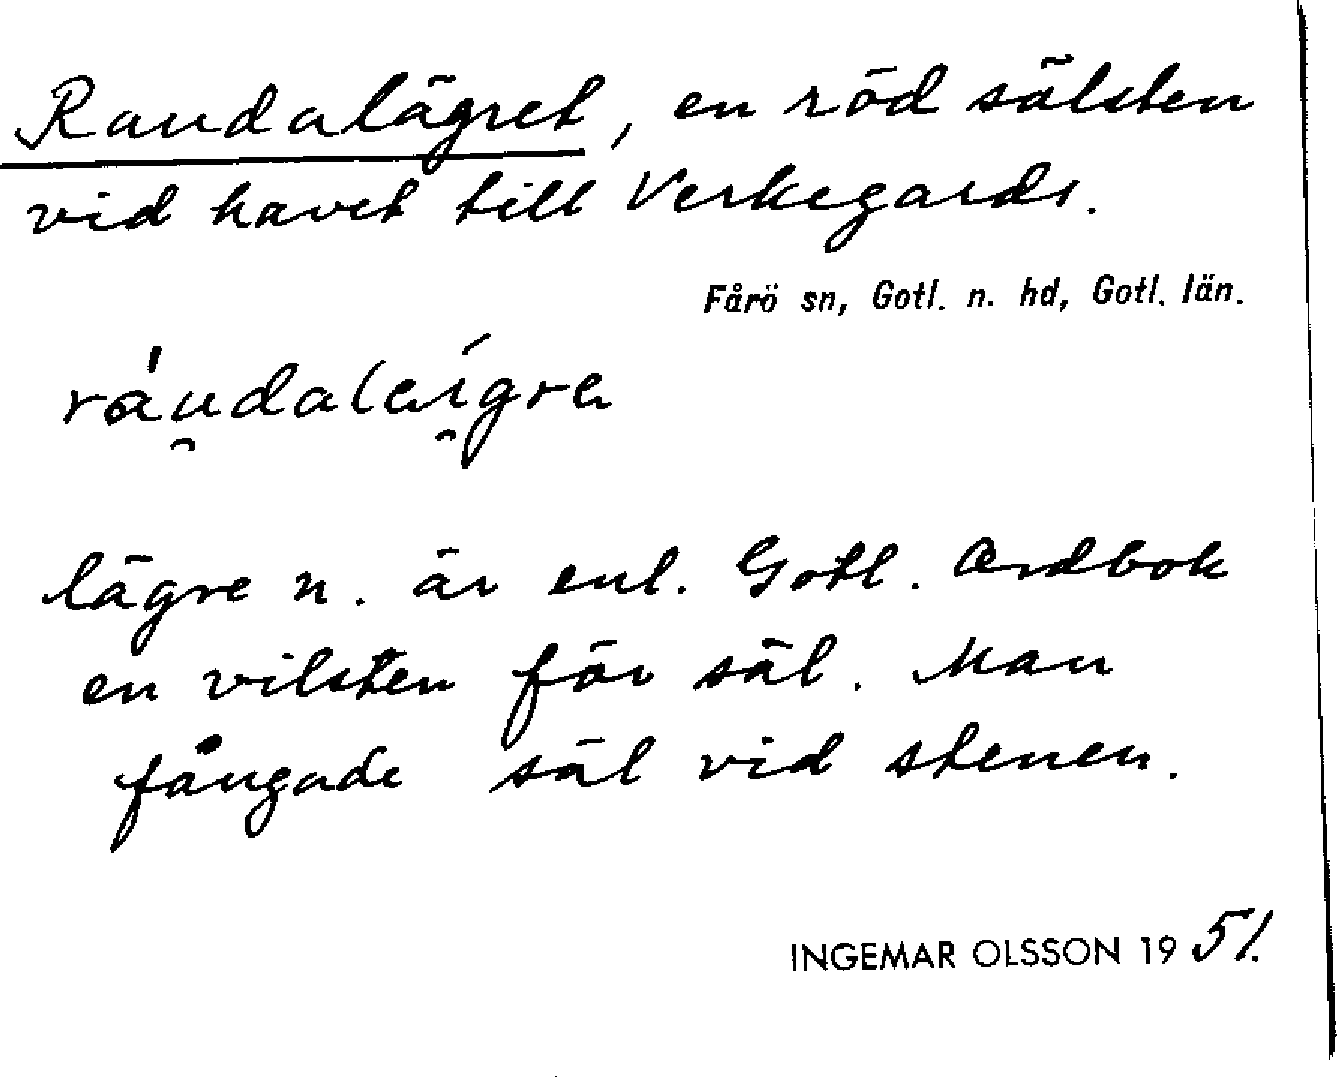 Raudalägret, en röd sälsten
vid havet till Verkegards.
Fårö sn, Gotl. n. hd, Gotl. län.
ráu̯dalei̯gre
lägre n. är enl. Gotl. Ordbok
en vilsten för säl. Man
fångade säl vid stenen.
INGEMAR OLSSON 1951.